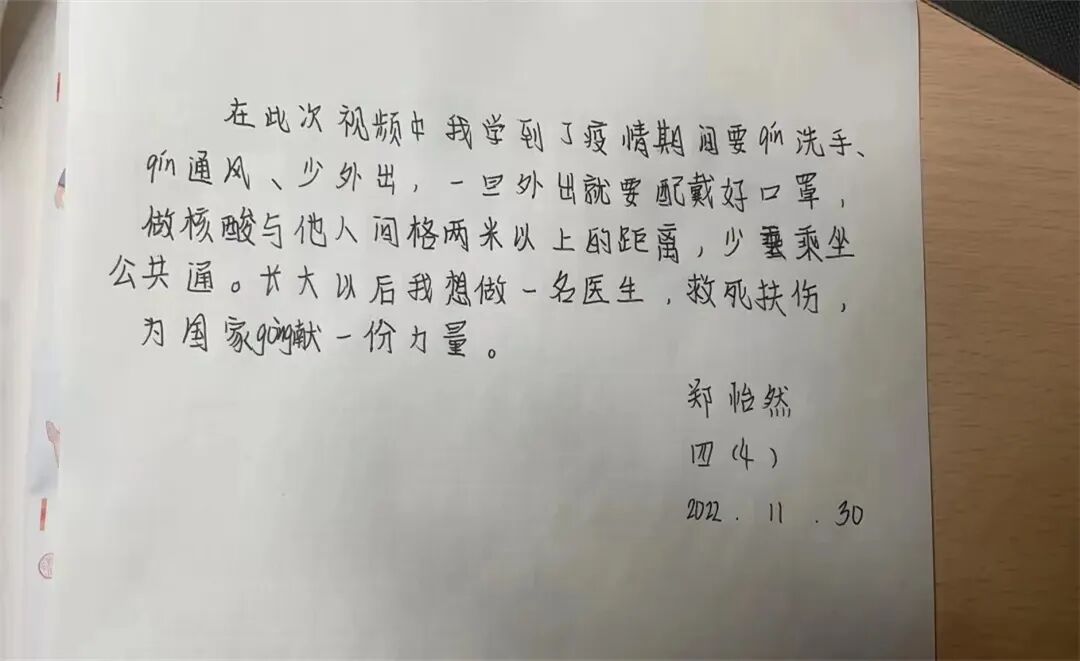 在此次视频中我学到了疫情期间要qín洗手、
qín通风、少外出，一旦外出就要配戴好口罩，
做核酸与他人间格两米以上的距离，少乘坐
公共通。长大以后我想做一名医生，救死扶伤，
为国家gòng献一份力量。
郑怡然
四(4)
2022.11.30